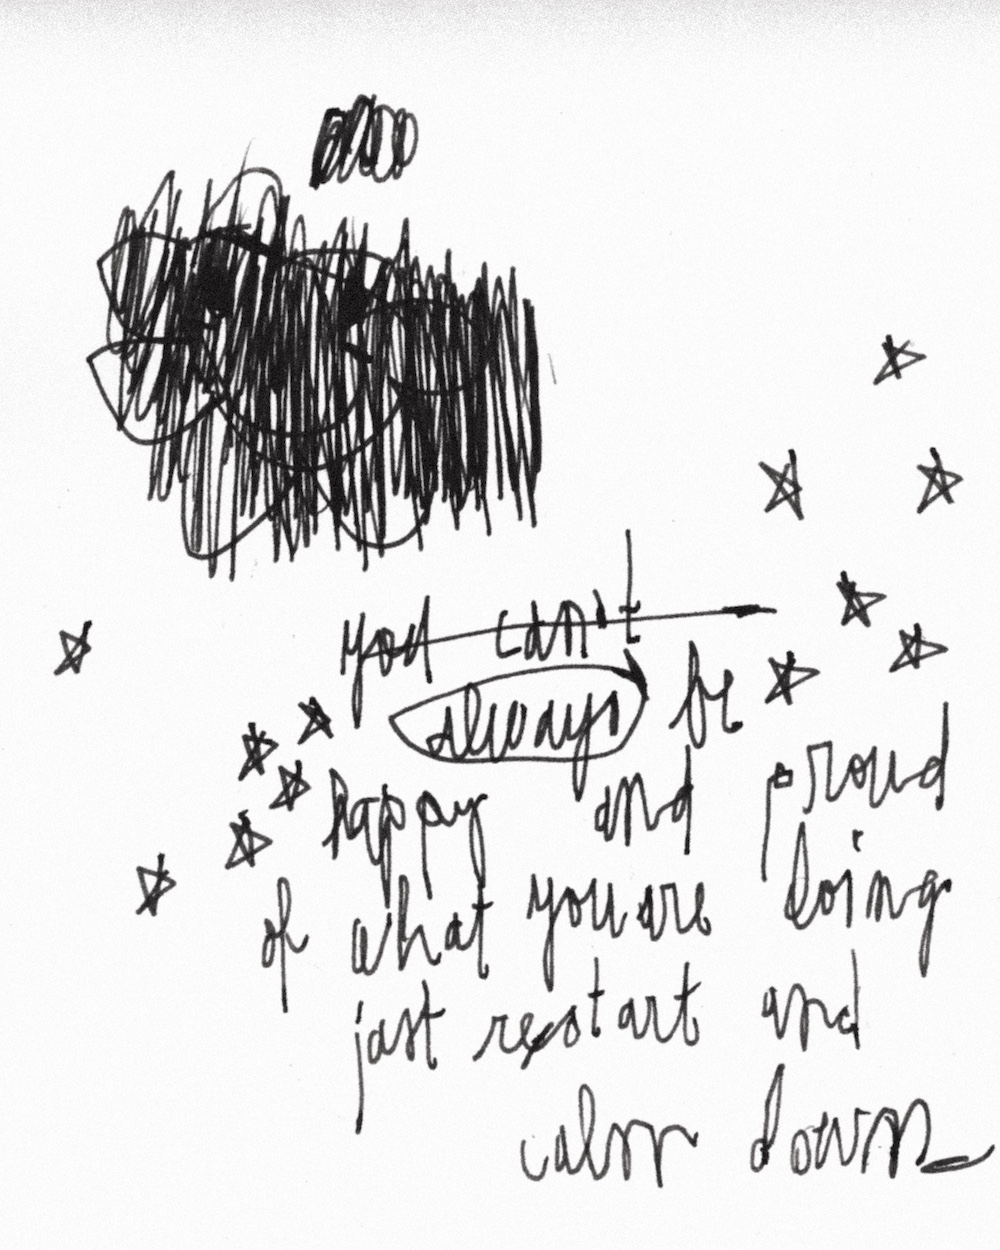 you can't
always be
happy and proud
of what you are doing
just restart and
calm down